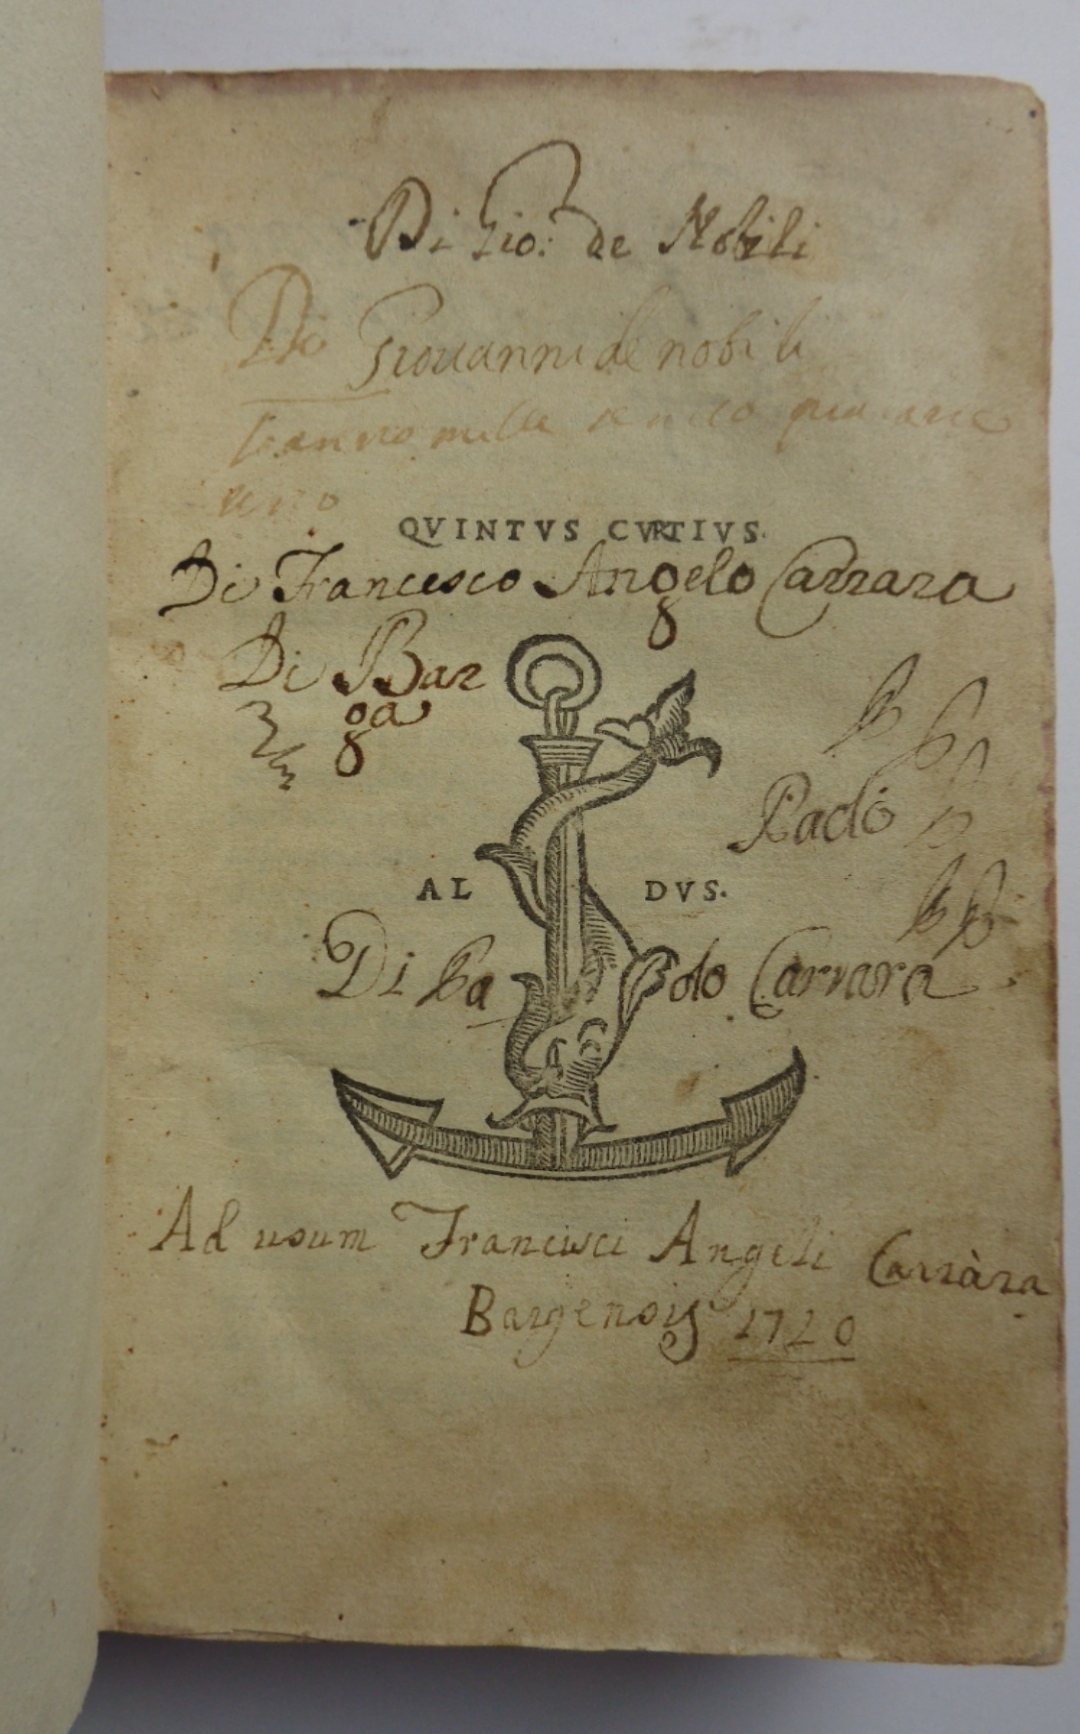 Di Gio: de Nobili
Di Giouanni de nobili
l'anno mille
uno
QVINTVS CVRTIVS.
Di Francesco Angelo Carrara
Di Bar
ga
AL DVS.
Di Pa olo Carrara
Ad usum Francisci Angeli Carràra
Bargensis 1720